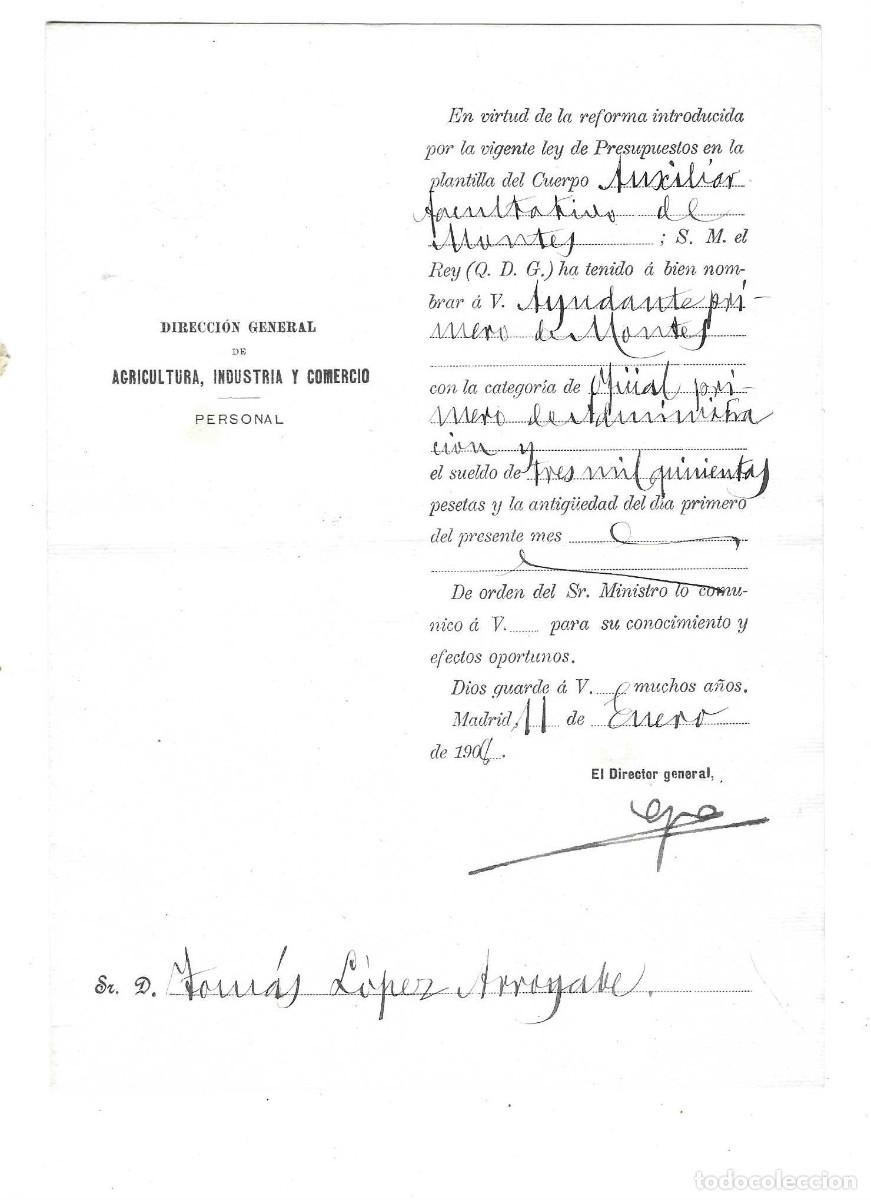 DIRECCIÓN GENERAL
DE
AGRICULTURA, INDUSTRIA Y COMERCIO
PERSONAL
En virtud de la reforma introducida
por la vigente ley de Presupuestos en la
plantilla del Cuerpo Auxiliar
facultativo de
Montes ; S. M. el
Rey (Q. D. G.) ha tenido á bien nom-
brar á V. Ayudante pri-
mero de Montes
con la categoría de Oficial pri-
mero de Administra
cion y
el sueldo de tres mil quinientas
pesetas y la antigüedad del día primero
del presente mes
De orden del Sr. Ministro lo comu-
nico á V. para su conocimiento y
efectos oportunos.
Dios guarde á V. muchos años.
Madrid, 11 de Enero
de 190
El Director general,
Sr. D. Tomás López Arroyabe.
todocoleccion